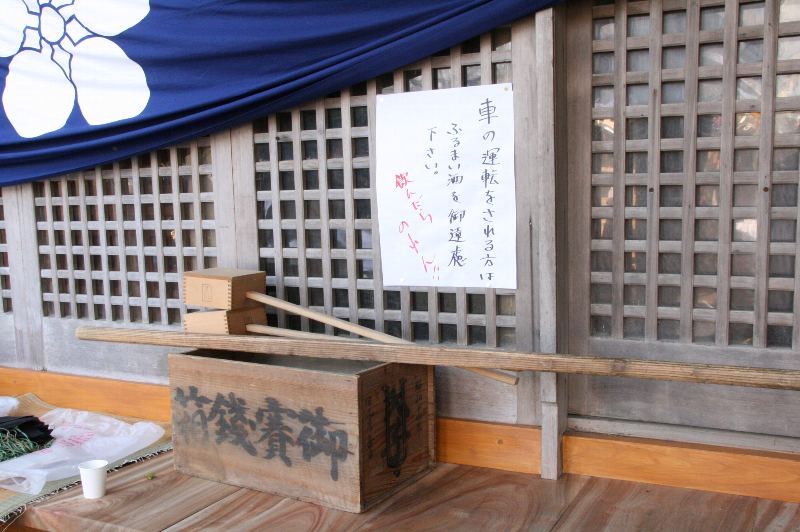 車の運転をされる方は
ふるまい酒を御遠慮
下さい。
飲んだら
のれん!!
御賽銭箱